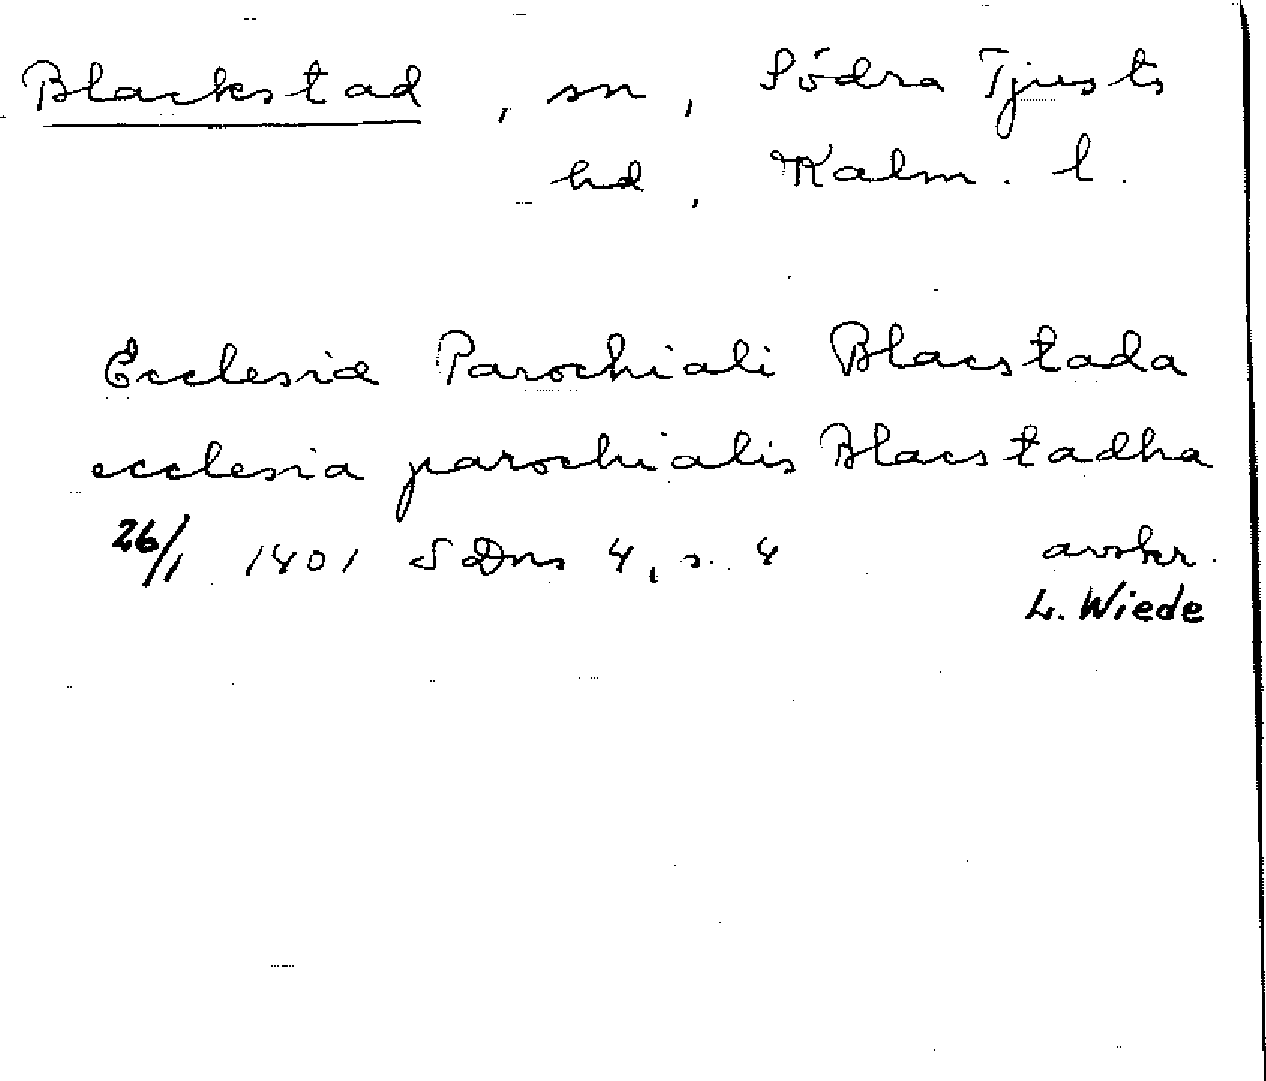 Blackstad, sn, Södra Tjusts
hd, Kalm. l.
Ecclesiæ Parochiali Blacstada
ecclesia parochialis Blacstadha
26/1 1401 SDns 4, s. 4 avskr.
L. Wiede